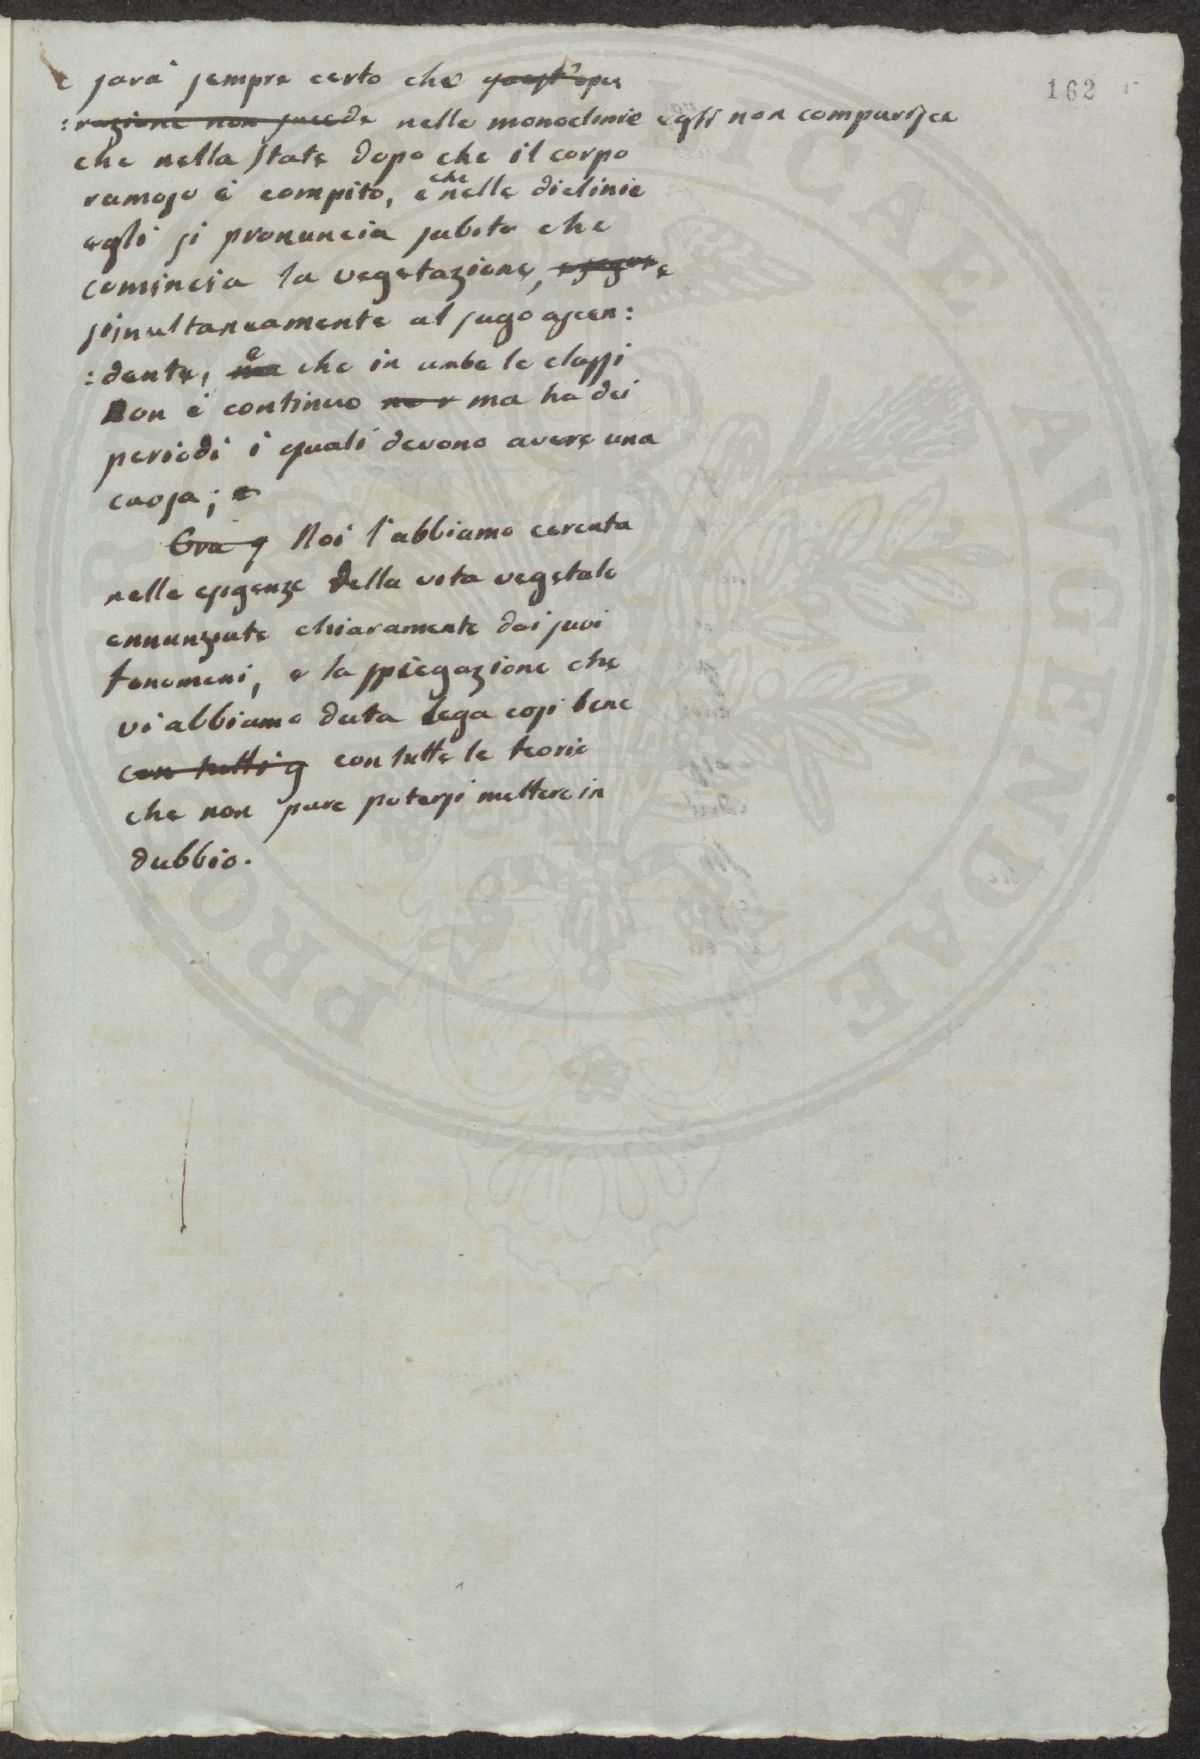 162
e sarà sempre certo che quest'ope
:razione non succede nelle monoclinie egli non comparisce
che nella state dopo che il corpo
ramoso è compito, e che nelle diclinie
egli si pronuncia subito che
comincia la vegetazione, e segue e
simultaneamente al sugo ascen:
:dente, ma e che in ambe le classi
non è continuo non ma ha dei
periodi i quali devono avere una
causa; e
Ora q Noi l'abbiamo cercata
nelle esigenze della vita vegetale
annunziate chiaramente dai suoi
fenomeni, e la spiegazione che
vi abbiamo data lega così bene
con tutti q con tutte le teorie
che non pare potersi mettere in
dubbio.
PRO AUGENDAE